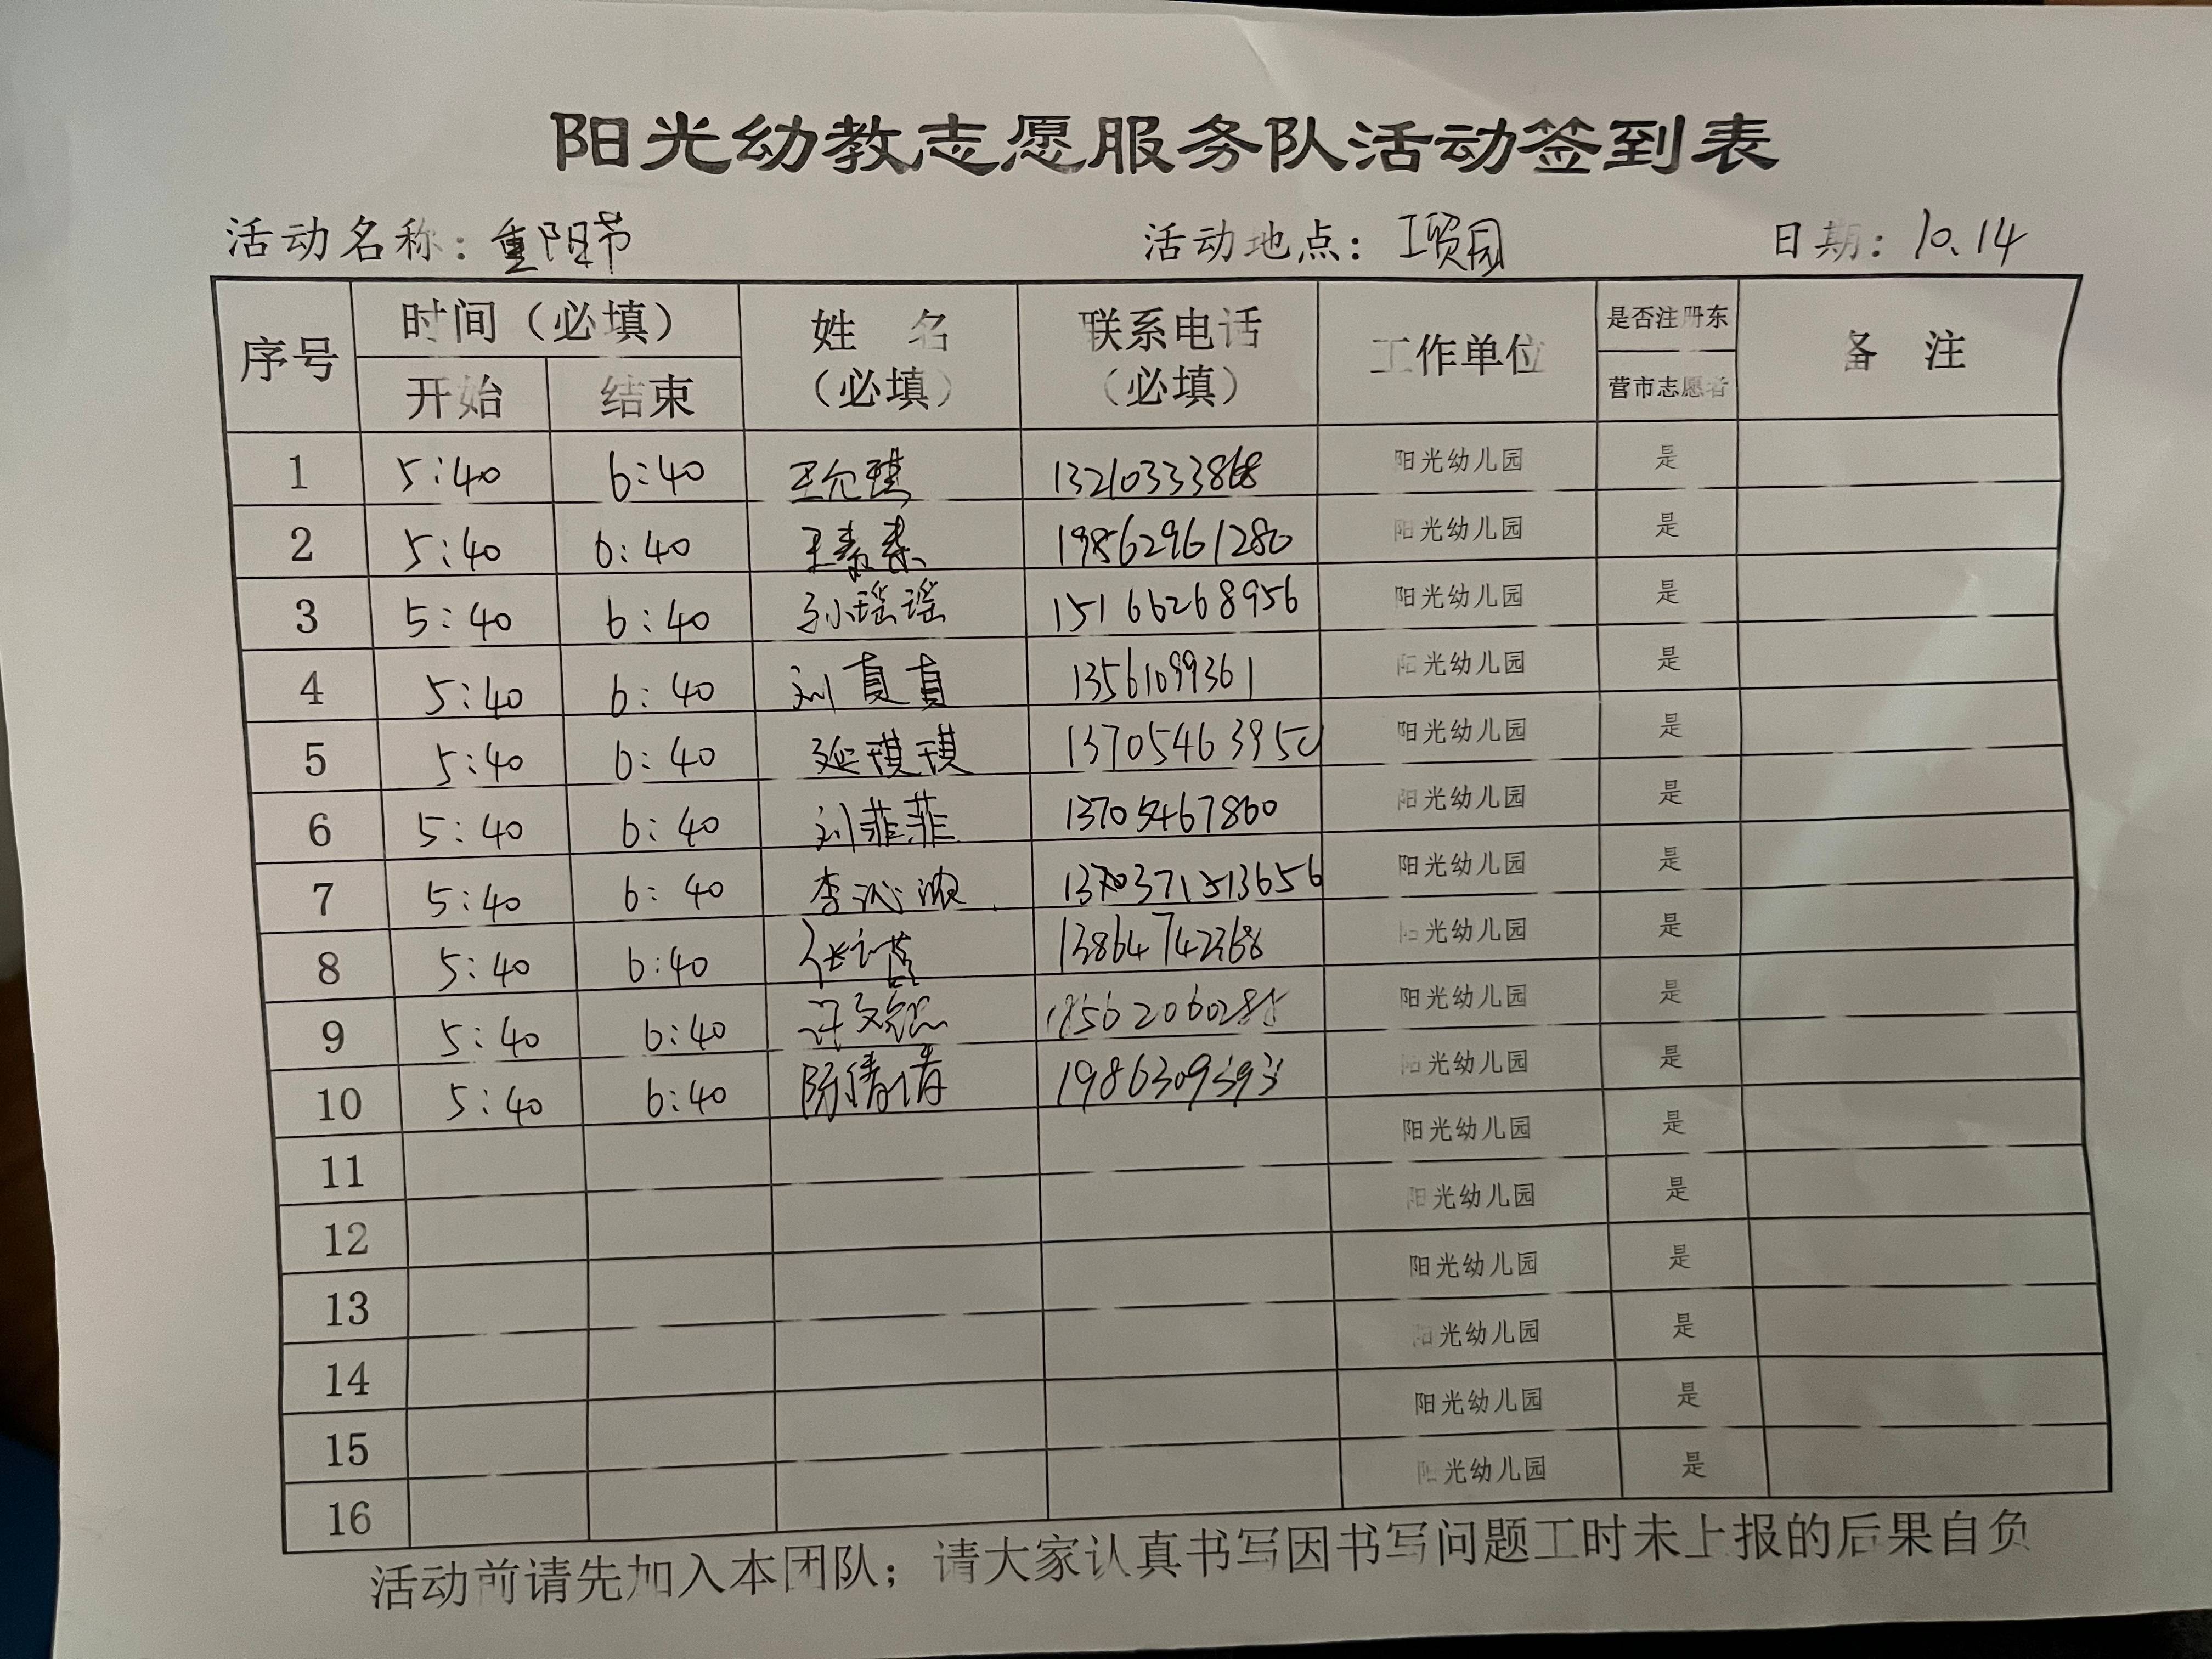 阳光幼教志愿服务队活动签到表
活动名称：重阳节 活动地点：工贸园 日期：10.14
序号 时间（必填） 姓 名（必填） 联系电话（必填） 工作单位 是否注册东营市志愿者 备 注
开始 结束
1 5:40 6:40 王允琪 13210333868 阳光幼儿园 是
2 5:40 6:40 王素素 19862961280 阳光幼儿园 是
3 5:40 6:40 孙瑶瑶 15166268956 阳光幼儿园 是
4 5:40 6:40 刘真真 13561099361 阳光幼儿园 是
5 5:40 6:40 延琪琪 阳光幼儿园 是
6 5:40 6:40 刘菲菲 13705467860 阳光幼儿园 是
7 5:40 6:40 阳光幼儿园 是
8 5:40 6:40 13864742368 阳光幼儿园 是
9 5:40 6:40 阳光幼儿园 是
10 5:40 6:40 陈倩倩 19863093393 阳光幼儿园 是
11 阳光幼儿园 是
12 阳光幼儿园 是
13 阳光幼儿园 是
14 阳光幼儿园 是
15 阳光幼儿园 是
16 阳光幼儿园 是
活动前请先加入本团队；请大家认真书写因书写问题工时未上报的后果自负